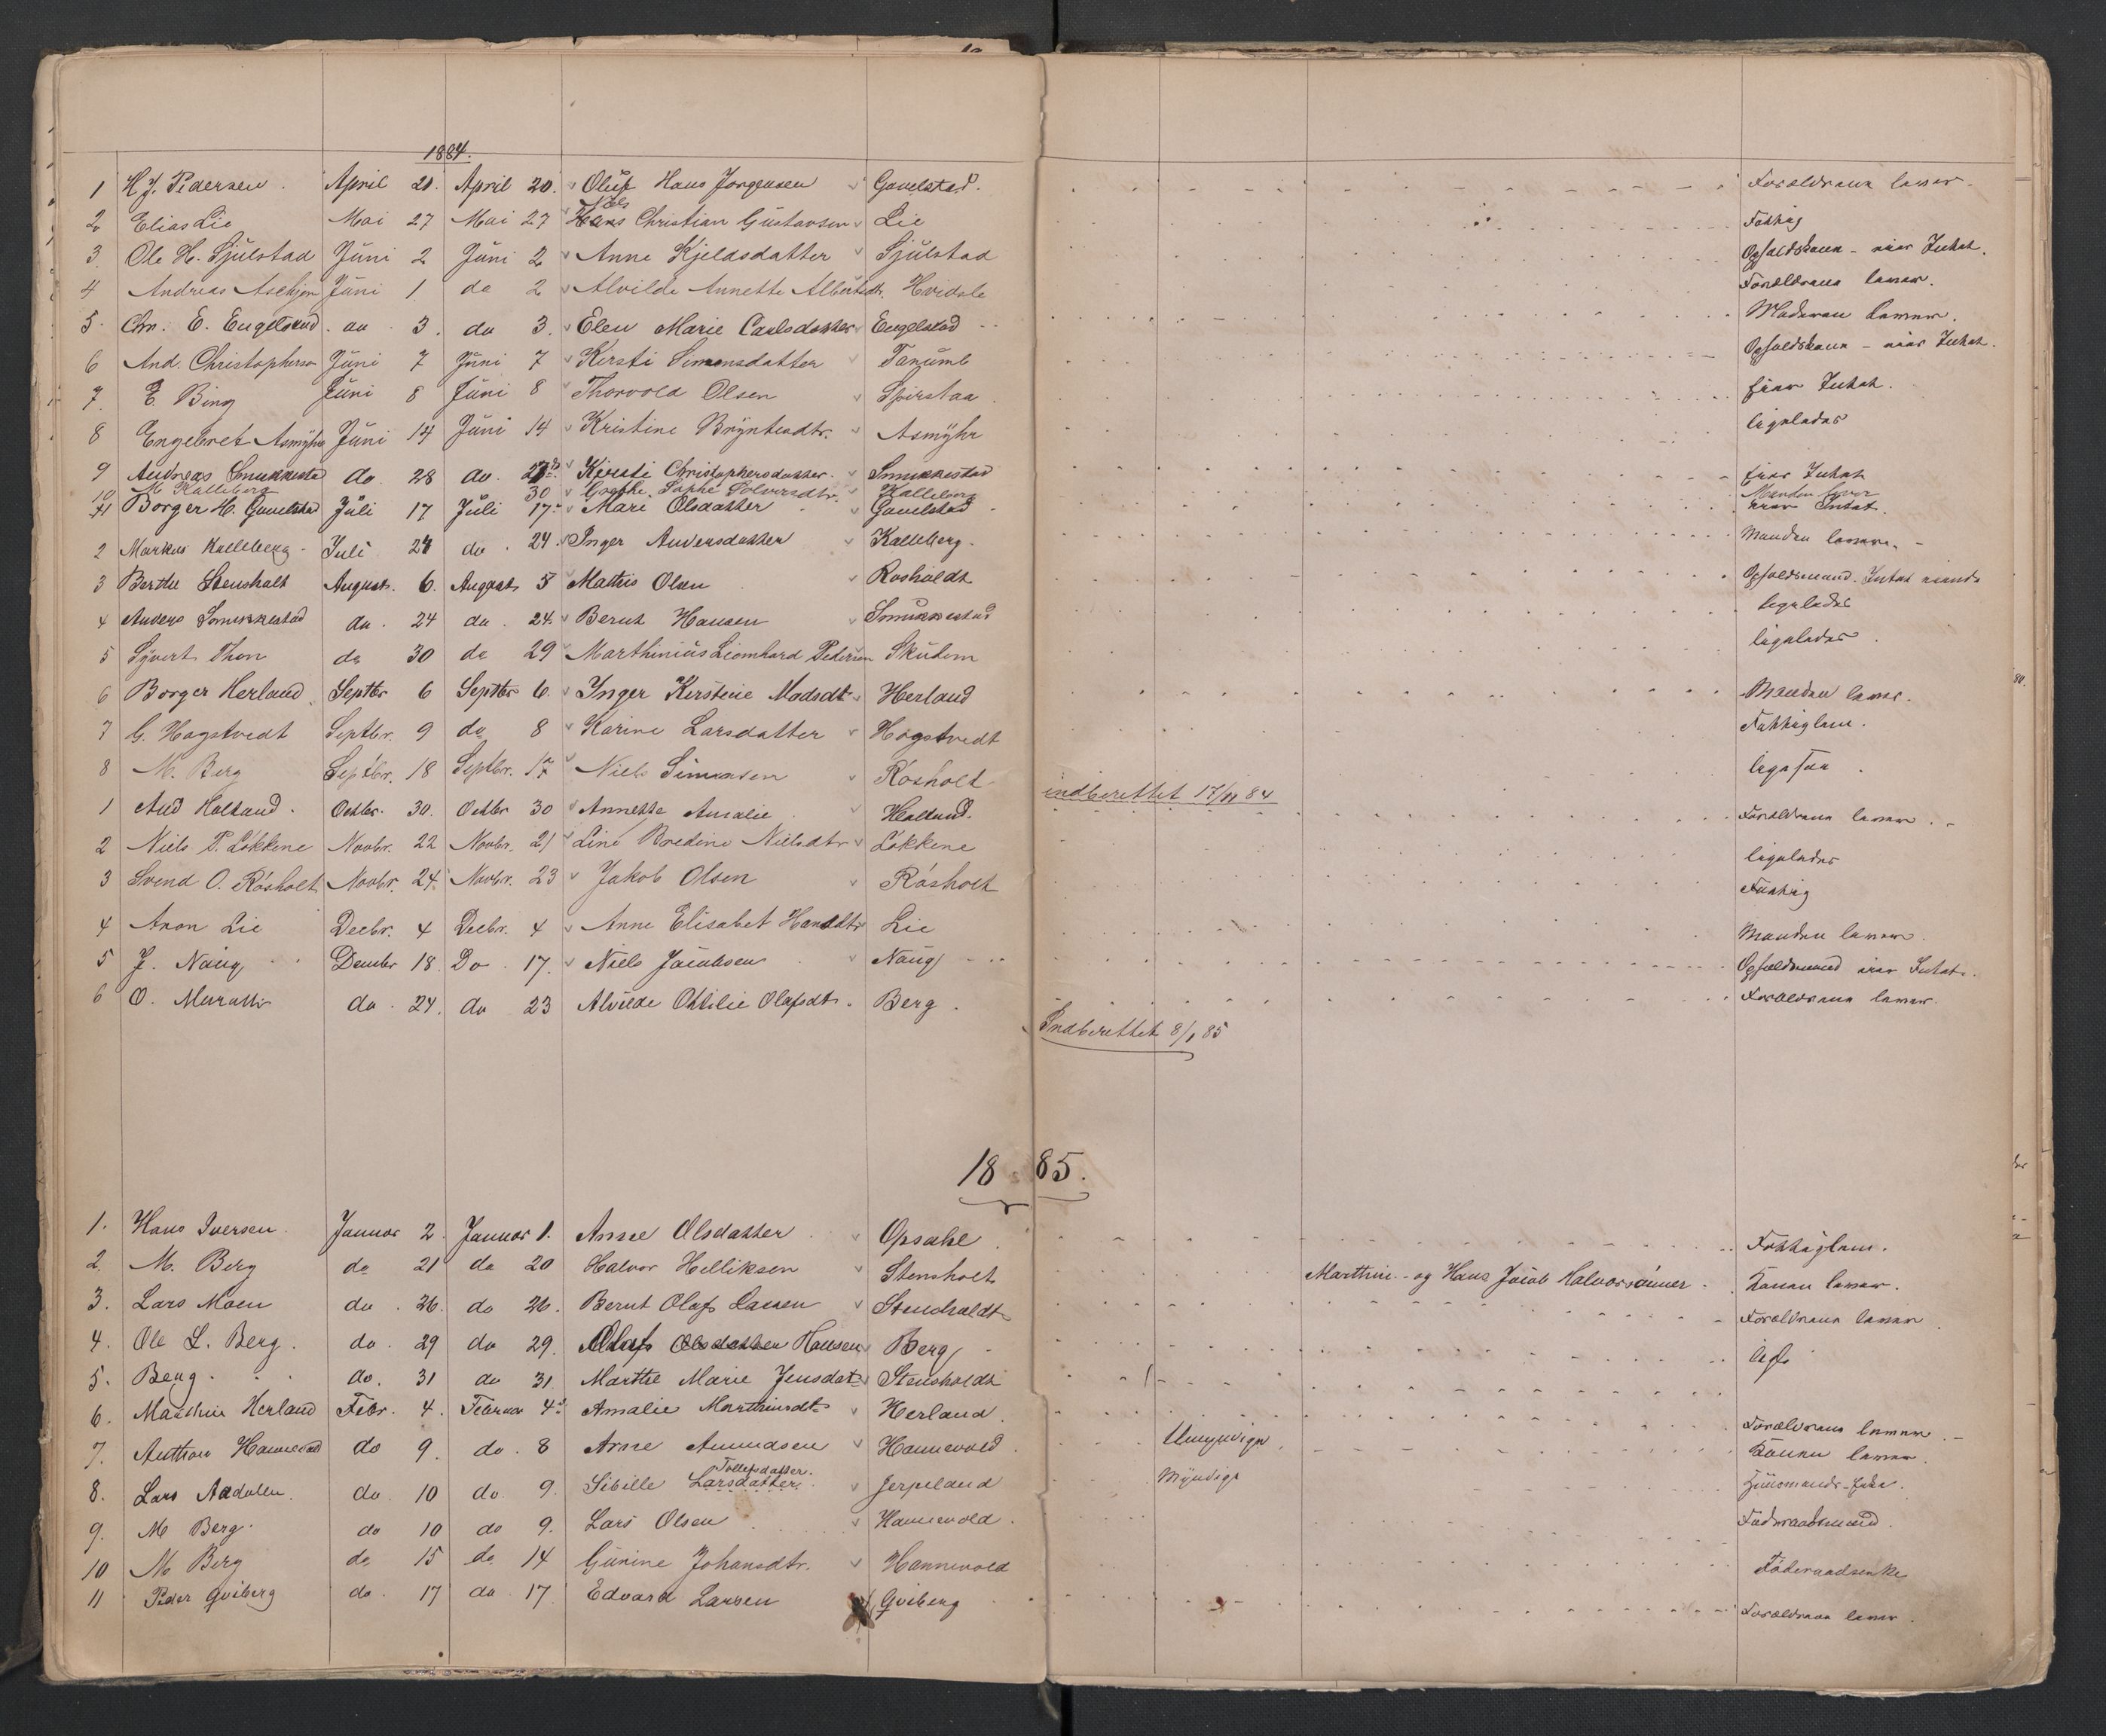 1884.
1 H J. Pedersen. April 21. April 20. Oluf Hans Jorgensen Gavelstad. Forældrene lever.
Niels
2 Elias Lie Mai 27 Mai 27 Hans Christian Gustavsen Lie Fattig
3. Ole H. Sjulstad Juni 2 Juni 2 Anne Kjeldsdatter Sjulstad
4 Andreas Askjem Juni 1 do 2 Alvilde Annette Albertsdtr. Hvidste Forældrene lever.
5. Chr. E. Engelstad. do 3. do 3. Elen Marie Carlsdatter Engelstad Moderen lever.
6 And. Christophersen Juni 7 Juni 7 Kirsti Simensdatter Tanumb
7. E. Bing Juni 8 Juni 8 Thorvold Olsen Spirstaa eier Intet.
8 Engebret Asmyhr Juni 14 Juni 14 Kristine Bryntesdtr. Asmyhr ligeledes
9 Andreas Smukkestad do 28 do. Kirsti Christophersdatter. Smukkestad eier Intet
10 M Kalleberg 30 Grethe Sophe Solversdtr. Kalleberg Manden lever
11 Borger H. Gavelstad Juli 17 Juli 17. Mari Olsdatter Gavelstad eier Intet.
2 Markus Kalleberg Juli 24 do. 24. Inger Andersdatter Kalleberg. Manden lever.
3 Berthe Stensholt August. 6. August 5 Mathis Olsen Rosholdt
4 Anders Smukkestad do. 24 do. 24. Bernt Hansen Smukkestad ligeledes
5 Syvert Thon do 30 do 29 Marthinius Lionhard Pedersen Skutem ligeledes.
6 Borger Herland. Septbr 6 Septbr 6. Inger Kirstine Madsdt. Herland Manden lever.
7 G. Hogstvedt Septbr. 9 do 8 Karine Larsdatter Hogstvedt Fattiglem.
8 M. Berg Septbr. 18 Septbr. 17 Niels Simensen Rosholt ligesaa.
indberettet 17/10 84
1 And Holtand. Octbr. 30. Octbr 30 Annette Amalie Holtand. Forældrene lever.
2 Niels P. Løkkene Novbr. 22 Novbr. 21 Line Bredine Nielsdtr Løkkene ligeledes
3 Svend O. Rosholt Novbr. 24. Novbr. 23 Jakob Olsen Rosholt Fattig
4 Aron Lie Decbr. 4 Decbr. 4 Anne Elisabet Hansdtr Lie Manden lever.
5 J. Naug Dember 18. Do. 17. Niels Jacobsen Naug
6 O. do. 24. do 23 Alvilde Othilie Olafsdtr. Berg. Forældrene lever.
Indberettet 8/1 85
1885.
1. Hans Iversen. Januar 2. Januar 1. Anne Olsdatter Opsahl. Fattiglem.
2. M. Berg do 21 do 20 Halvor Helliksen Stensholt Marthin - og Hans Jacob Halvorsønner. Konen lever.
3. Lars Moen do. 26. do 26. Bernt Olaf Larsen Stensholdt Forældrene lever
4. Ole L. Berg. do. 29 do 29. Oluf Olsdatter Hansen Berg
5. Berg. do. 31 do 31. Marthe Marie Jensdat Stensholdt
6. Marthin Herland Febr. 4. Februar 4. Amalie Marthinsdt. Herland. Forældrene lever.
7. Anthon Hannevold do 9. do. 8 Arne Amundsen Hannevold. Umyndige. Konen lever.
Tollefsdatter.
8. Lars Aadalen. do. 10 do. 9. Sibille Larsdatter. Jerpeland Myndige Huusmands-Enke.
9. M Berg. do 10 do 9. Lars Olsen Hannevold. Føderaadsmand.
10 M Berg do 15 do 14 Gunine Johansdtr. Hannevold Føderaadsenke
11 Peder Gviberg do. 17 do. 17 Edvard Larsen Gviberg Forældrene lever.